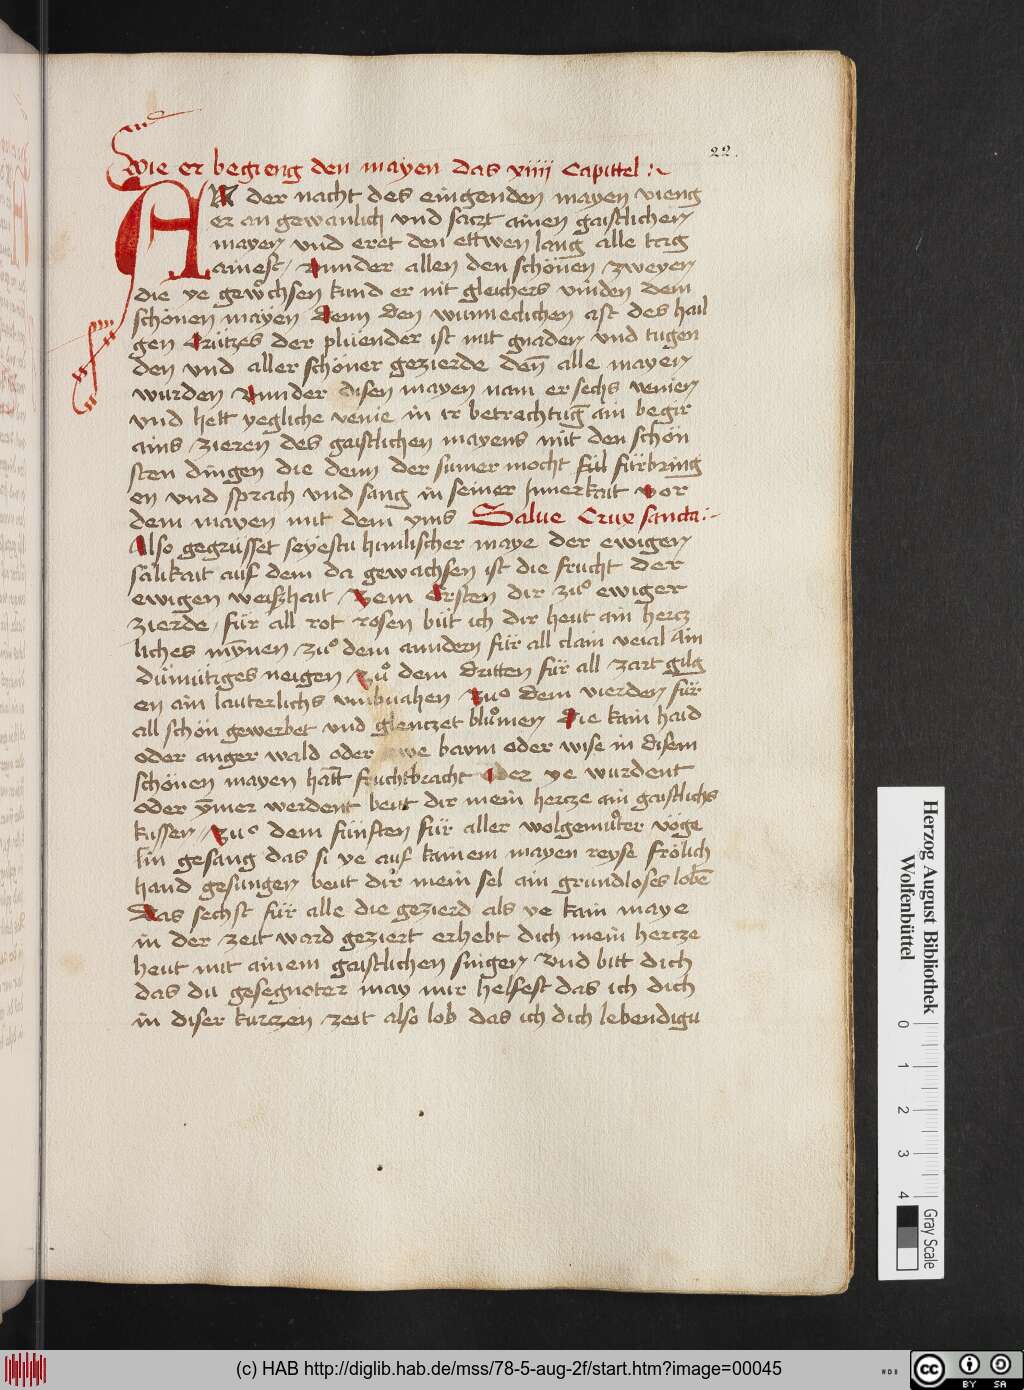 22.
Wie er begieng den mayen das xiiij Capittel :~
AN der nacht des eingenden mayen vieng
er an gewanlich vnd saczt ainen gaistlichen
mayen vnd eret den ettwen lang alle tag
ainest / vnnder allen den schönen zweyen
die ye gewůchsen kund er nit gleichers vinden dem
schönen mayen denn den wunneclichen ast des hail
gen crützes der plüender ist mit gnaden vnd tugen
den vnd aller schöner gezierde deñ alle mayen
wurden vnnder disen mayen nam er sechs venien
vnd hett yegliche venie in ir betrachtūg ain begir
ains zieren des gaistlichen mayens mit den schön
sten dingen die denn der sumer mocht fúl fúrbring
en vnd sprach vnd sang in seiner Innerkait vor
dem mayen mit dem yms Salue Crux sancta :~
Also gegrüsset seyestu himlischer maye der ewigen
sälikait auf dem da gewachsen ist die frucht der
ewigen weißhait / Zem Ersten dir zuo ewiger
zierde / für all rot rosen büt ich dir heut ain hercz
liches mȳnen zuo dem anndern für all clain veial ain
dümütiges neigen / Zů dem dritten für all zart gilg
en ain lauterlichs vmbuahen Zuo dem vierden für
all schön gewerbet vnd glenczet blůmen die kain haid
oder anger wald oder owe baum oder wise in disem
schönen mayen hatt fruchtbracht oder ye wurdent
oder ȳmer werdent beut dir mein hercze ain gaistlichs
küssen / Zuo dem fünften für aller wolgemůter vöge
lin gesang das si ye auf kainem mayen reyse frölich
hand gesungen beut dir mein sel ain grundloses lobē
Das sechst für alle die gezierd als ye kain maye
in der zeit ward geziert erhebt dich mein hercze
heut mit ainem gaistlichen singen vnd bitt dich
das du gesegnoter may mir helfest das ich dich
in diser kurczen zeit also lob das ich dich lebendigu
Herzog August Bibliothek
Wolfenbüttel
0 1 2 3 4
Gray Scale
(c) HAB http://diglib.hab.de/mss/78-5-aug-2f/start.htm?image=00045
cc BY SA